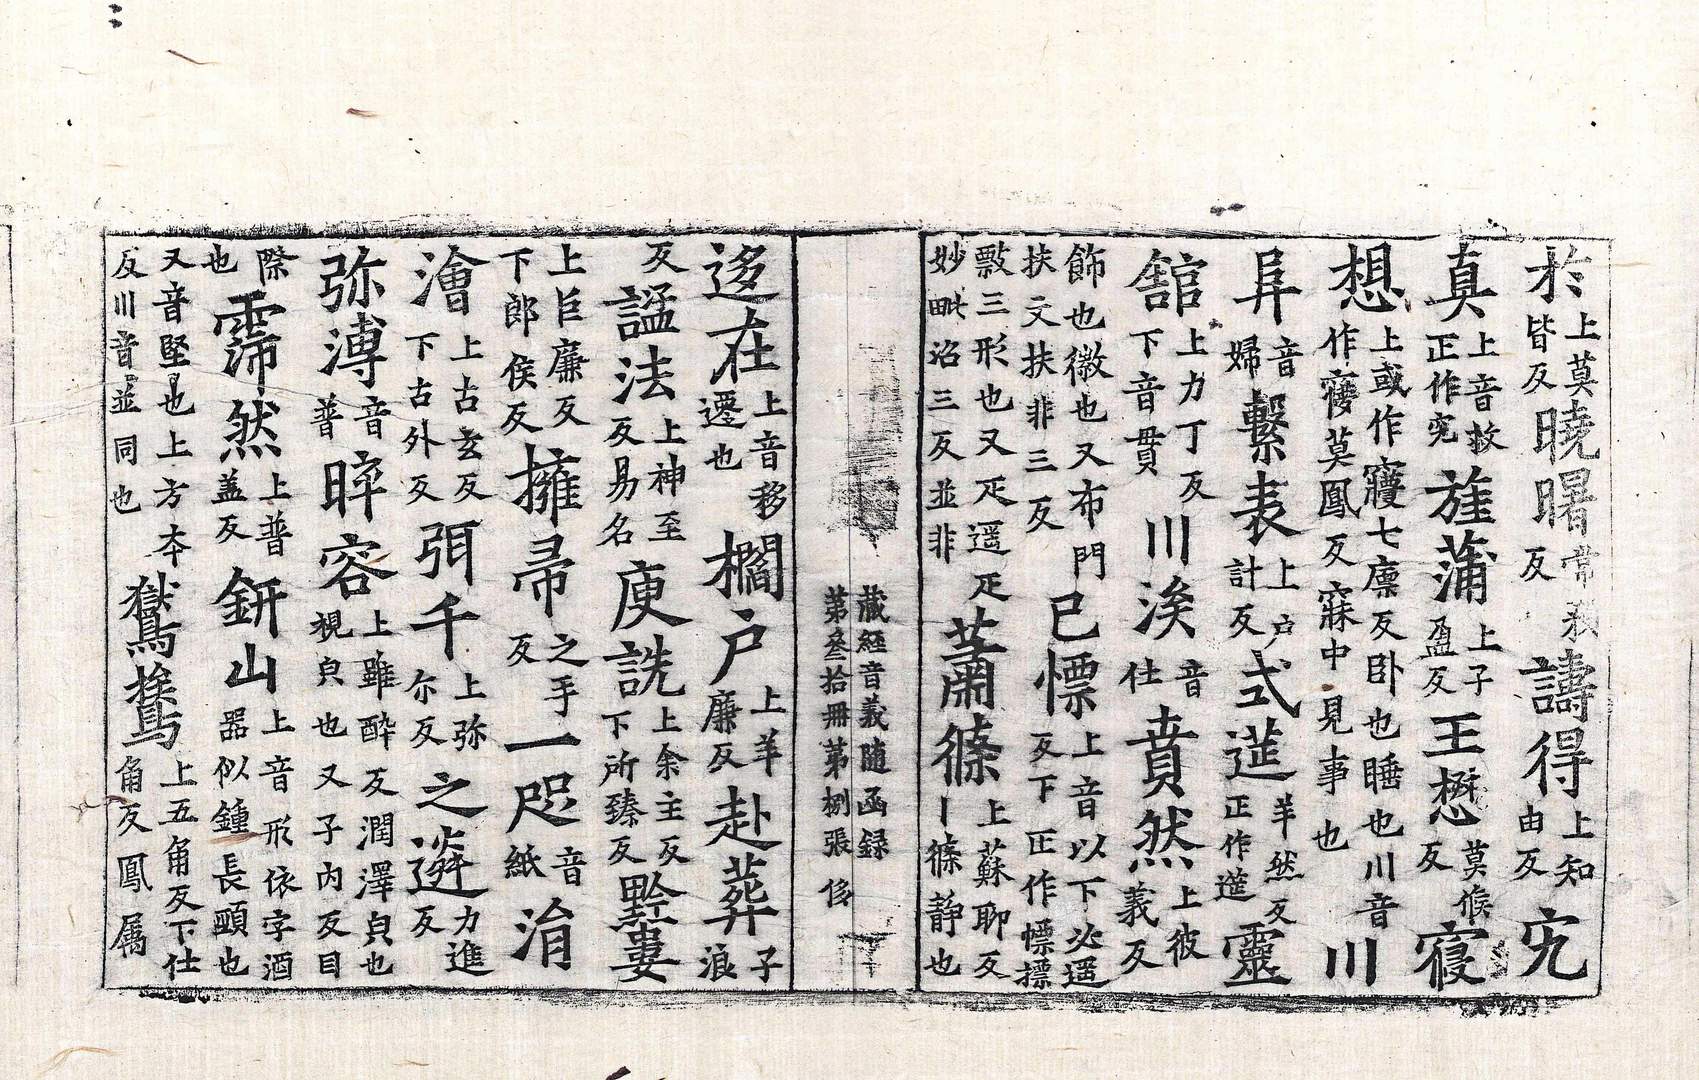 於上莫皆反曉曙常反譸得上知由反宄
真上音救正作究旌蒲上子盈反王懋莫侯反寢
想上或作寢七廩反卧也睡也川音作㝱莫鳳反寐中見事也川
阜音婦繫表上户計反式莚羊然反正作莚靈
舘上力丁反下音貫川涘音仕賁然上彼義反
飾也徽也又布門扶文扶非三反已慓上音以下必遥反下正作慓摽
瓢三形也又疋遥疋妙毗沼三反並非蕭篠上蘇聊反丨篠静也
藏經音義随函録
第叁拾冊第捌張 侈
迻在上音移遷也櫩户上羊廉反赴葬子浪
反謚法上神至反易名庾詵上余主反下所臻反黔婁
上巨廉反下郎侯反擁帚之手反一咫音紙涓
澮上古玄反下古外反弭千上弥尔反之遴力進反
弥溥音普睟容上雖醉反潤澤皃也又子内反目視皃也
際也霈然上普盖反鈃山上音形依字酒器似鍾長頸也
又音堅也上方本反川音並同也鸑鷟上五角反下仕角反鳳属